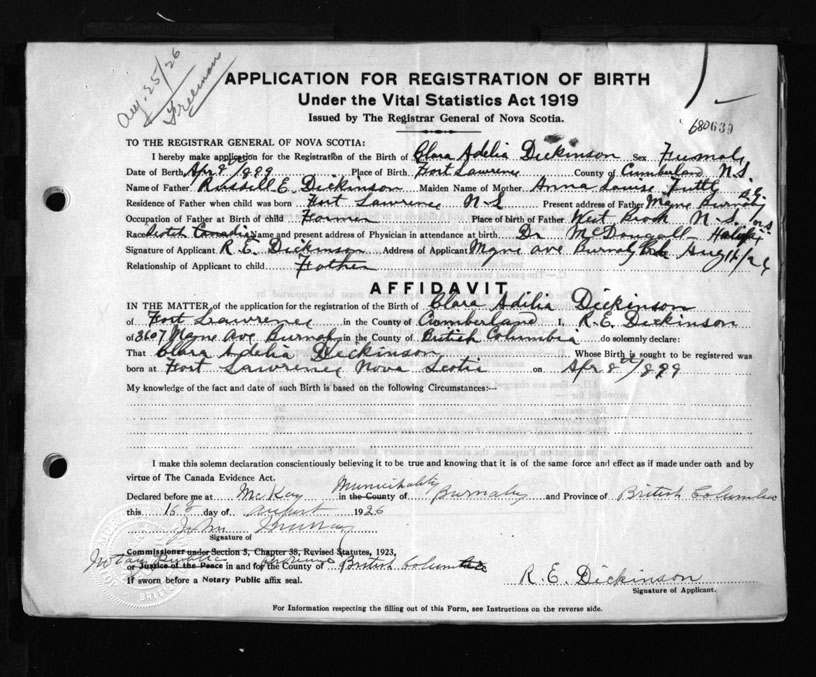 Aug. 25/26
Freeman
APPLICATION FOR REGISTRATION OF BIRTH
Under the Vital Statistics Act 1919
Issued by The Registrar General of Nova Scotia.
680639
TO THE REGISTRAR GENERAL OF NOVA SCOTIA:
I hereby make application for the Registration of the Birth of Clara Adelia Dickinson Sex Female
Date of Birth Apr 8th 1899 Place of Birth Fort Lawrence County of Cumberland N.S.
Name of Father Russell E. Dickinson Maiden Name of Mother Anna Louise
Residence of Father when child was born Fort Lawrence N S Present address of Father Burnaby
Occupation of Father at Birth of child Farmer Place of birth of Father West Brook N.S.
Race Scotch Canadian Name and present address of Physician in attendance at birth Dr McDougall Halifax
Signature of Applicant R. E. Dickinson Address of Applicant ave Burnaby Aug 16/26
Relationship of Applicant to child Father
AFFIDAVIT
IN THE MATTER of the application for the registration of the Birth of Clara Adilia Dickinson
of Fort Lawrence in the County of Cumberland I, R. E. Dickinson
of 3607 Ave Burnaby in the County of British Columbia do solemnly declare:
That Clara Adelia Dickinson Whose Birth is sought to be registered was
born at Fort Lawrence Nova Scotia on Apr 8th 1899
My knowledge of the fact and date of such Birth is based on the following Circumstances:—
I make this solemn declaration conscientiously believing it to be true and knowing that it is of the same force and effect as if made under oath and by
virtue of The Canada Evidence Act.
Declared before me at McKay Municipality in the County of Burnaby and Province of British Columbia
this 16th day of august 1926
John Murray
Signature of
Commissioner under Section 5, Chapter 38, Revised Statutes, 1923,
Notary Public Province British Columbia
or Justice of the Peace in and for the County of
If sworn before a Notary Public affix seal.
R. E. Dickinson
Signature of Applicant.
For Information respecting the filling out of this Form, see Instructions on the reverse side.